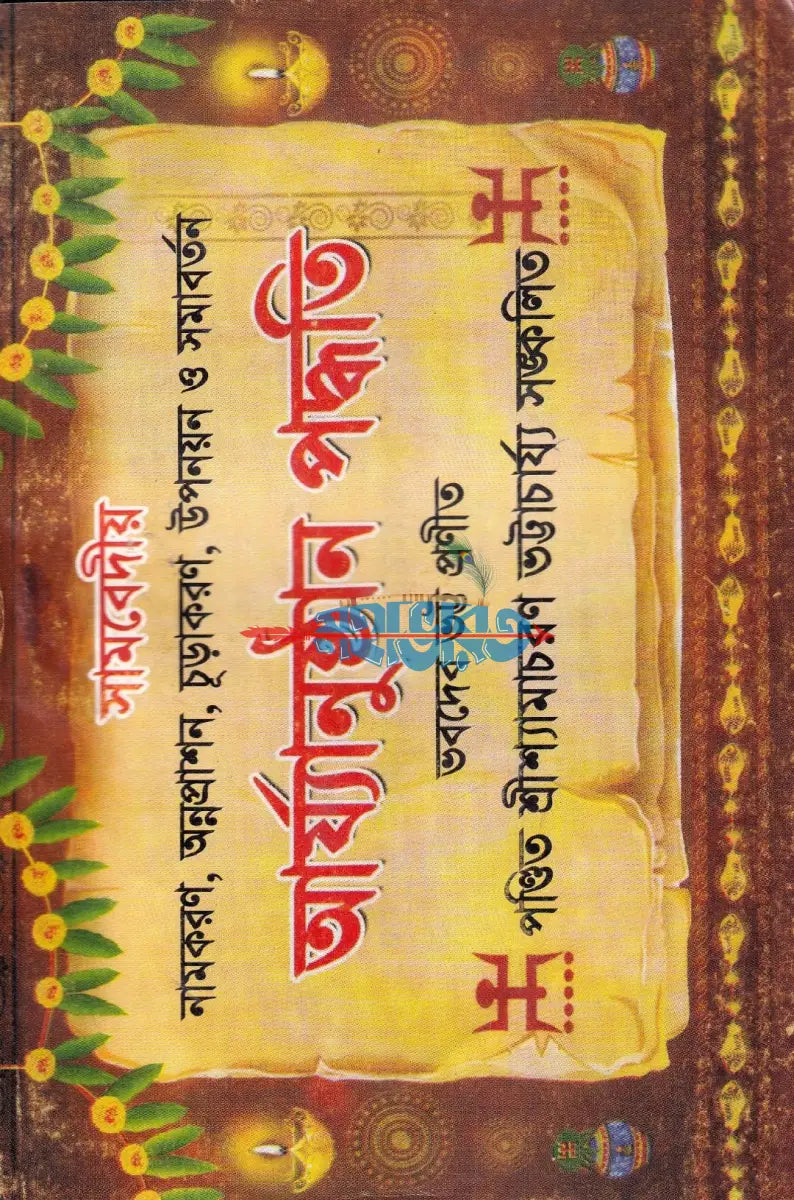 সামবেদীয়
নামকরণ, অন্নপ্রাশন, চূড়াকরণ, উপনয়ন ও সমাবর্তন
আর্য্যানুষ্ঠান পদ্ধতি
ভবদেব ভট্ট প্রণীত
পণ্ডিত শ্রীশ্যামাচরণ ভট্টাচার্য্য সঙ্কলিত